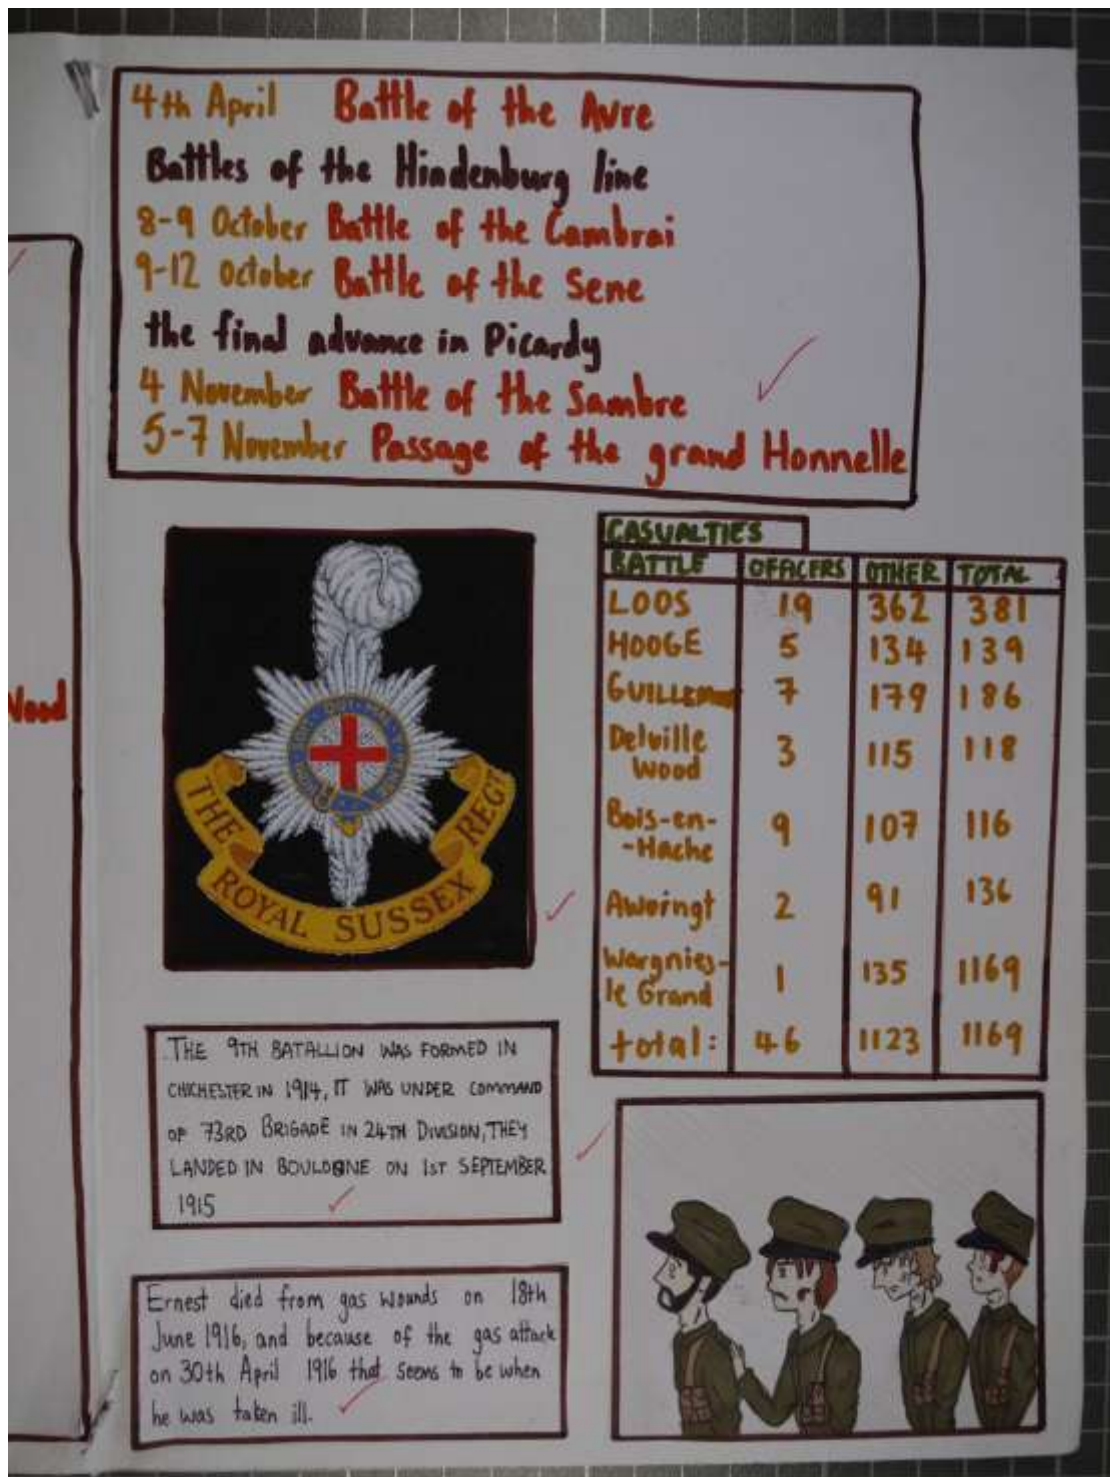 4th April Battle of the Avre
Battles of the Hindenburg line
8-9 October Battle of the Cambrai
9-12 October Battle of the Sene
the final advance in Picardy
4 November Battle of the Sambre
5-7 November Passage of the grand Honnelle
Wood
CASUALTIES
BATTLE OFFICERS OTHER TOTAL
LOOS 19 362 381
HOOGE 5 134 139
7 179 186
Delville
Wood 3 115 118
Bois-en-
-Hache 9 107 116
Awoingt 2 91 136
Wargnies-
le Grand 1 135 1169
total: 46 1123 1169
THE ROYAL SUSSEX REGT
THE 9TH BATALLION WAS FORMED IN
CHICHESTER IN 1914, IT WAS UNDER COMMAND
OF 73RD BRIGADE IN 24TH DIVISION, THEY
LANDED IN BOULOGNE ON 1ST SEPTEMBER
1915
Ernest died from gas wounds on 18th
June 1916, and because of the gas attack
on 30th April 1916 that seems to be when
he was taken ill.